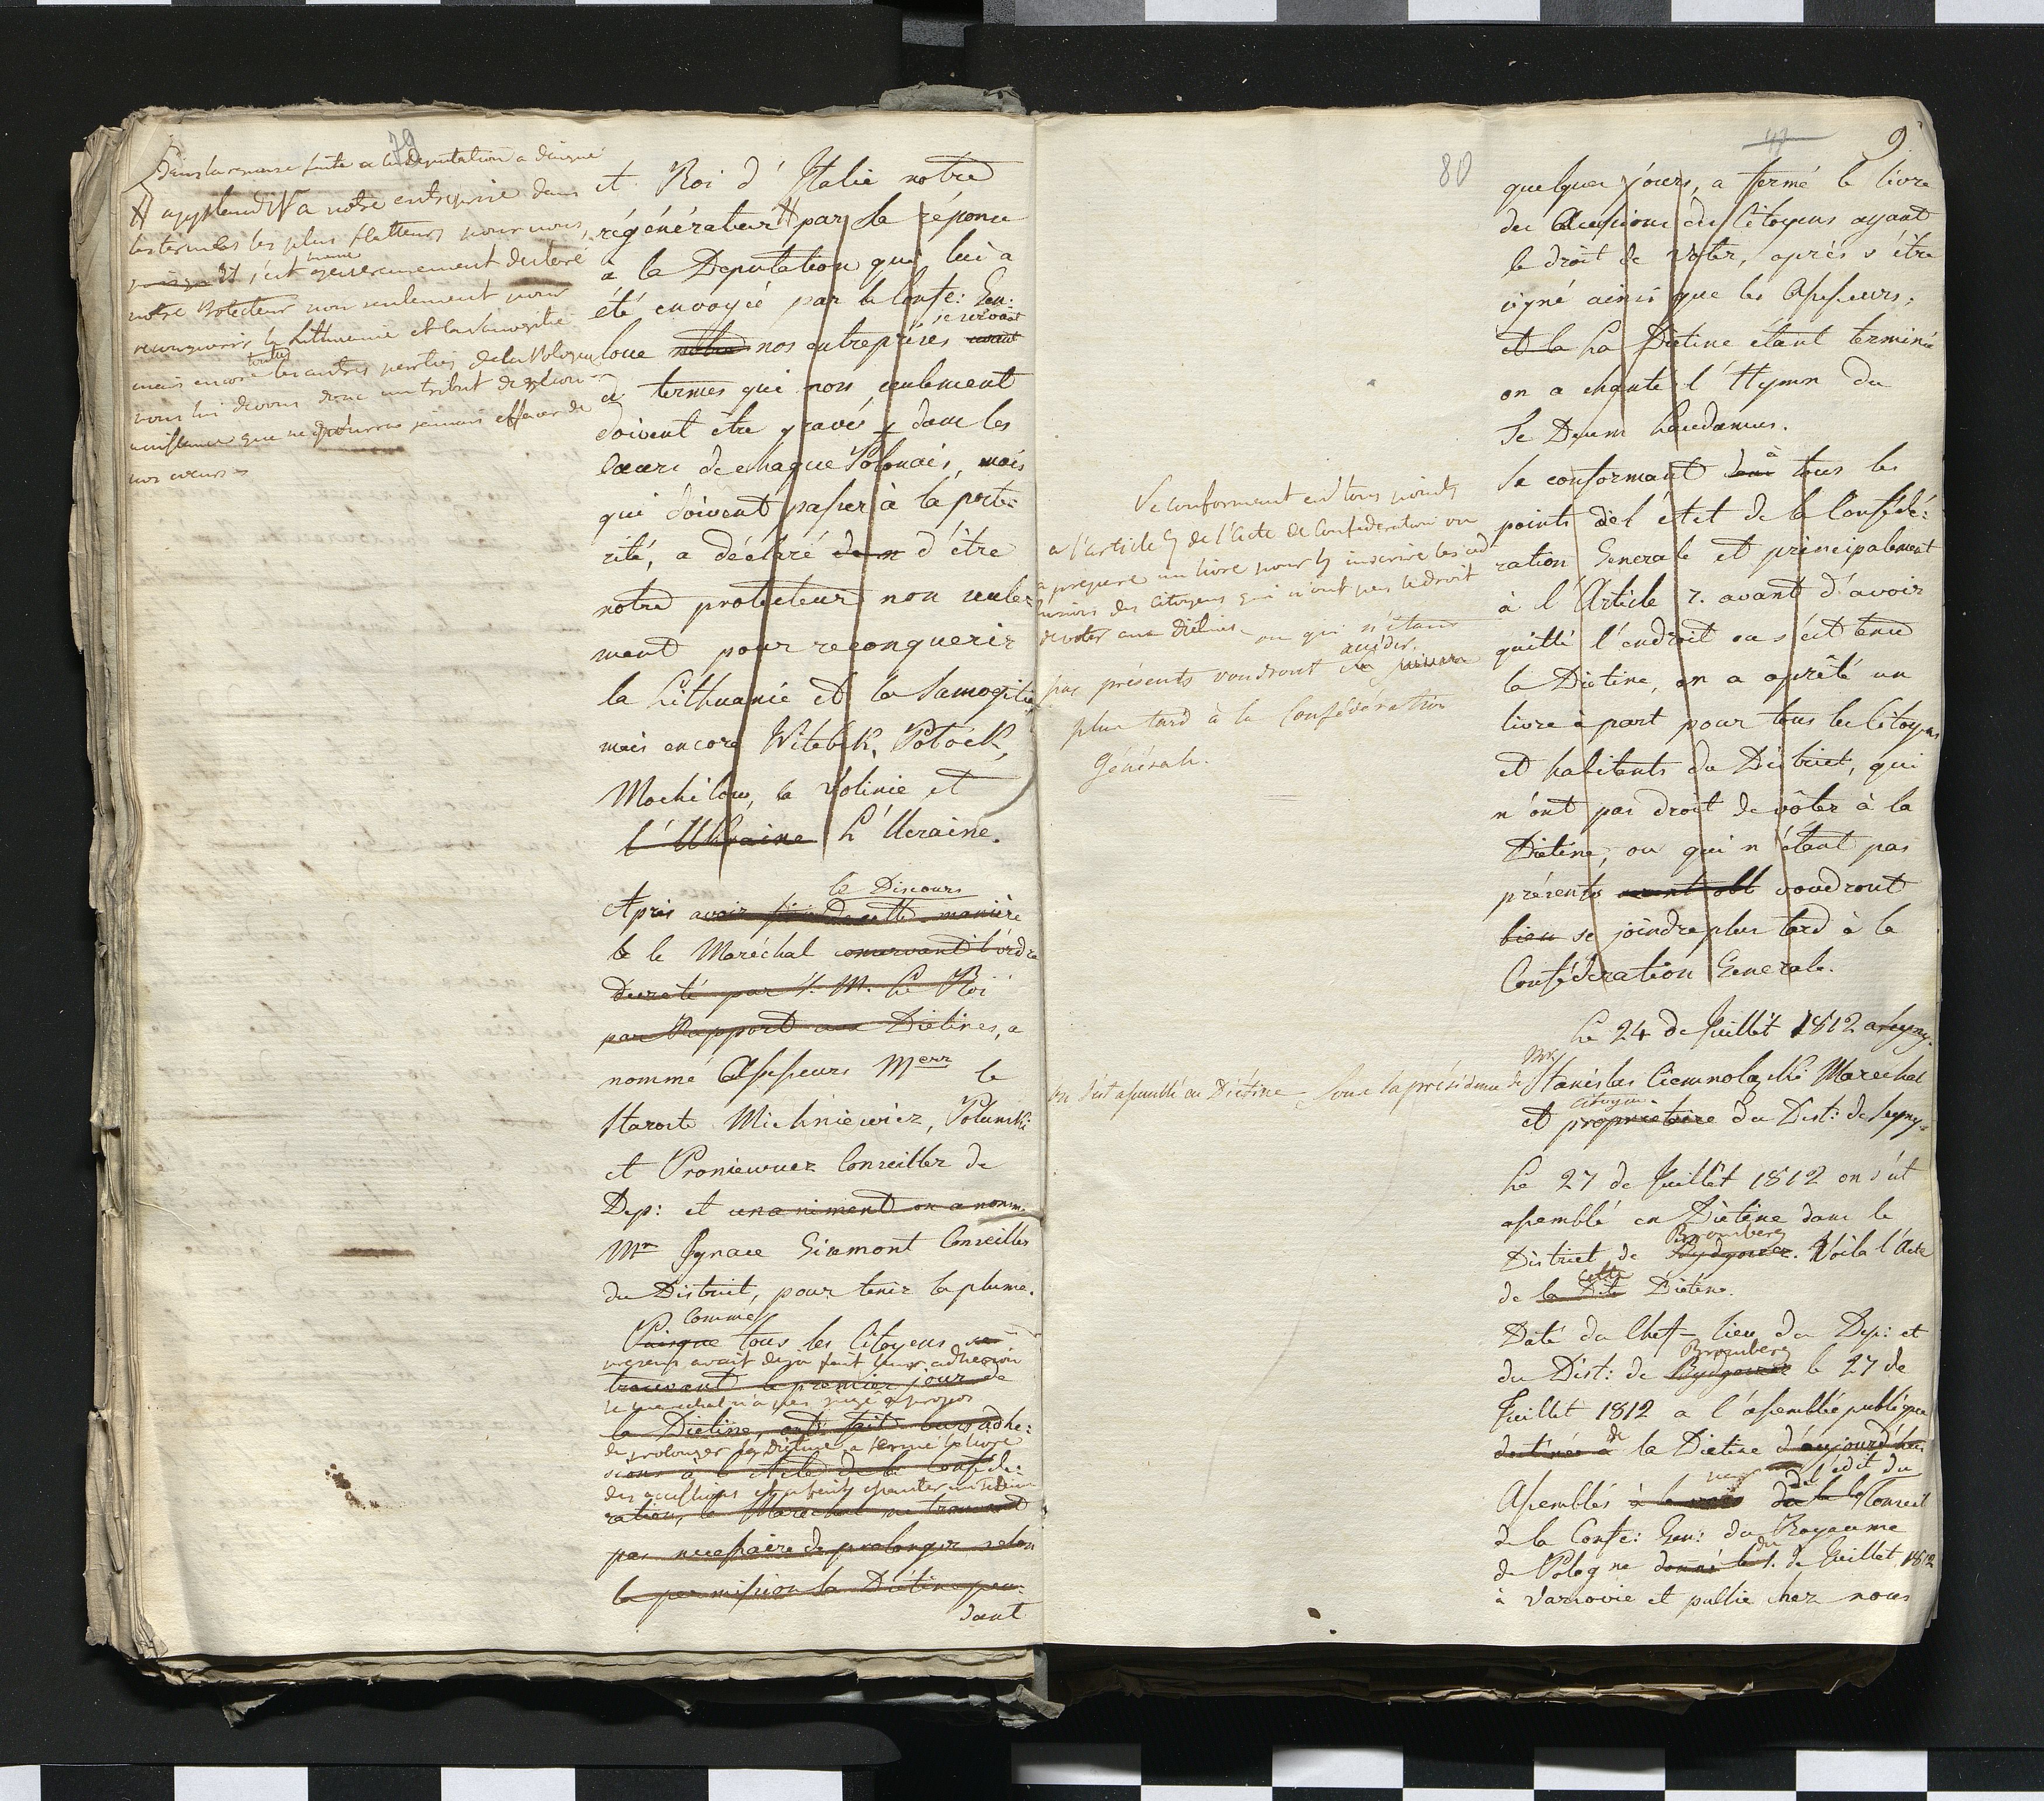 79
Dans la reponse faite a la deputation a daigné
# applaudir a notre entreprise dans
les termes les plus flatteurs pour nous,
Il s'est meme genereusement declaré
notre Protecteur non seulement pour
reconquerir la Lithuanie et la Samogitie
mais encore toutes les autres parties de la Pologne
nous lui devons donc un tribut de recon-
naissance que ne pourra jamais effacer de
nos cœurs
et Roi d'Italie notre
régénérateur # par sa réponse
à la Deputation qui lui a
été envoyée par la Confe: Gen:
loue notre nos entreprises se servant
d termes qui non seulement
doivent être gravés dans les
cœurs de chaque Polonais, mais
qui doivent passer à la poste:
rité, a déclaré d'être
notre protecteur non seule:
ment pour reconquerir
la Lithuanie et la Samogitie
mais encore Witebsk, Potock,
Mochilow, la Volinie et
l'Ukraine L'Ucraine.
le Discours
Après avoir fini de cette manière
le le Maréchal conservant l'ordre
decreté par S. M. le Roi
par Rapport aux Dietines, a
nommé Assesseurs Merr le
Staroste Michniewicz, Polunski
et Proniewicz Conseiller de
Dep: et unaniment on a nommé
Mr Ignace Giemont Conseiller
du District, pour tenir la plume.
Comme
Puisque tous les Citoyens se
presens avait deja fait leur adhesion
trouvant le premier jour de
le marechal n'a pas jugé a propos
la Dietine, ont fait leurs adhe:
de prolonger la Dietine a fermé le livre
sions à l'Acte de la Confede:
ration, le Marechal ne trouvant
pas necessaire de prolonger selon
la permission la Diétine pen:
dant
80
9
quelques jours, a fermé le livre
des Accessions des Citoyens ayant
le droit de voter, après s'être
signé ainsi que les Assesseurs,
et la La Diétine étant terminée
on a chanté l'Hymn du
Te Deum Laudamus.
Se conformant à tous les
points de l'Acte de la Confédé:
ration Generale et principalement
à l'Article 7. avant d'avoir
quitté l'endroit ou s'est tenue
la Diétine, on a aprêté un
livre à part pour tous les Citoyens
et habitants du District, qui
n'ont pas droit de vôter à la
Diétine, ou qui n'étant pas
présents voudront
bien se joindre plus tard à la
Confédération Generale.
Se conformant en tous points
a l'article 7 de l'Acte de Confederation on
a preparé un livre pour y inscrire les ad
hesions des Citoyens qui n'ont pas le droit
de voter aux diétines ou qui n'étant
pas présents voudront accéder
plus tard à la Confédération
Générale.
Le 24 de Juillet 1812 a Seyny.
on s'est assemblé en Diétine sous la présidence de Mr Stanislas Ciemnolazki Marechal
et proprietaire citoyen du Dist: de Seyny.
Le 27 de Juillet 1812 on s'est
assemblé en Diétine dans le
Bromberg
District de Bydgoszcz. Voila l'Acte
de la Dite cette Diétine.
Daté du Chef-lieu du Dep: et
Bromberg
du Dist: de Bydgoszcz le 27 de
Juillet 1812 a l'assemblée publique
destinée à de la Dietine d'aujourd'hui
Assemblés à la voix de l'edit du Conseil
de la Confe: Gen: du Royaume
de Pologne donné le du 1. de Juillet 1812
à Varsovie et publie chez nous